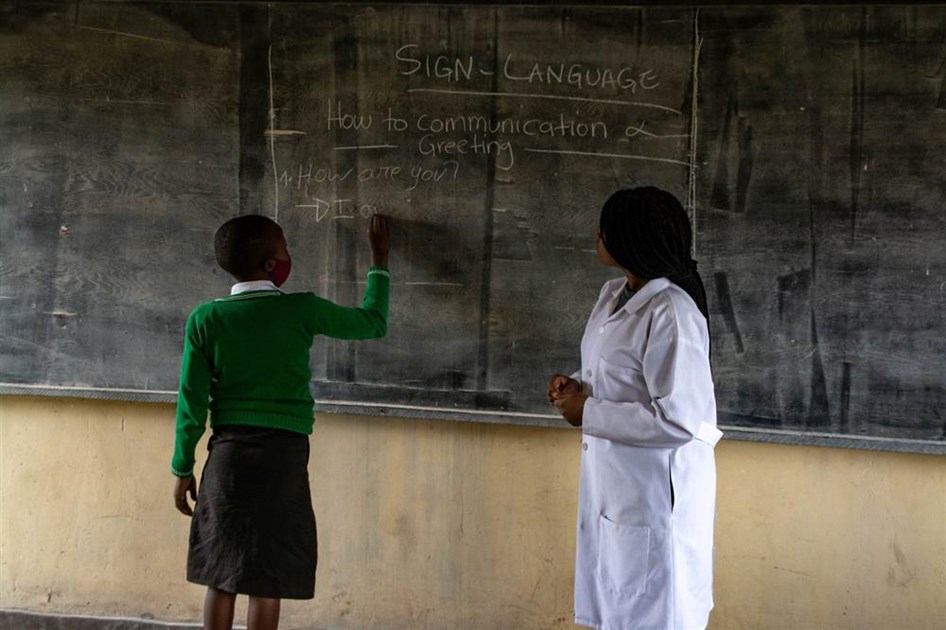 SIGN-LANGUAGE
How to communication &
Greeting
1. How are you?
→ I a